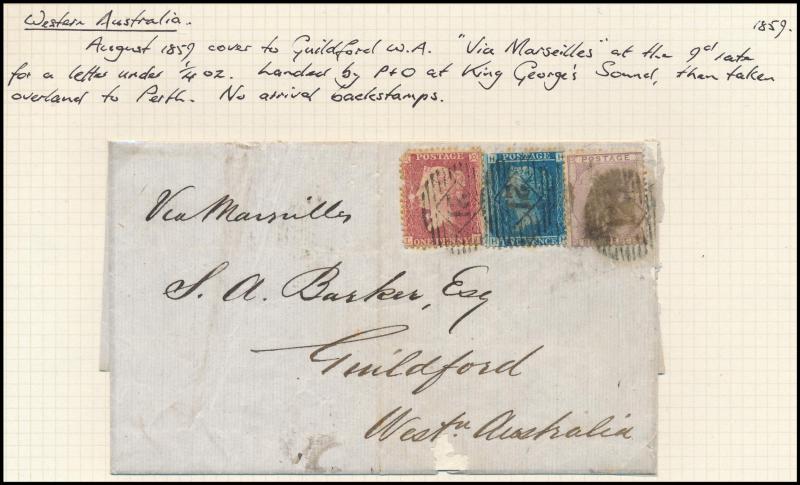 Western Australia. 1859.
August 1859 cover to Guildford W.A. "Via Marseilles" at the 9d rate
for a letter under 1/4 oz. Landed by P+O at King George's Sound, then taken
overland to Perth. No arrival backstamps.
POSTAGE POSTAGE POSTAGE
21 21
ONE PENNY PENCE
Via Marseilles
S. A. Barker, Esq
Guildford
Westn Australia